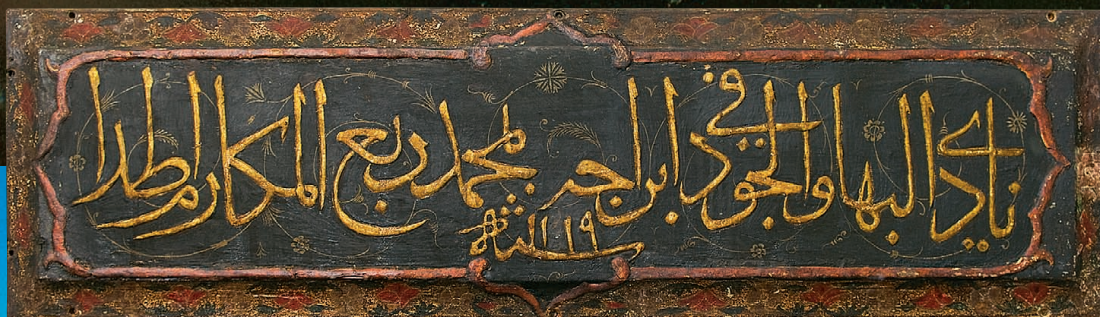 نادي البها والجود في ابراجه بمحمد ربع المكارم اطدا
سنة ١١٩